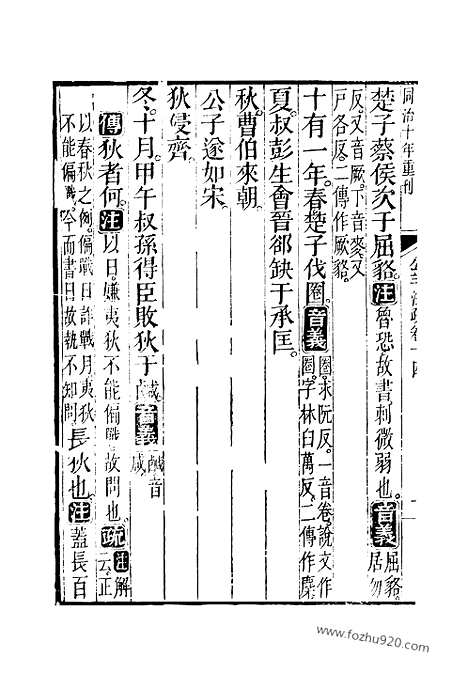 同治十年重刊
公羊注疏卷十四
楚子蔡侯次于屈貉。注魯恐故書刺微弱也。音義屈貉居勿
反又音厥下音麥又
戶各反二傳作厥貉
十有一年春楚子伐圈。音義圈求阮反一音卷說文作
圈字林臼萬反二傳作麇
夏叔彭生會晉郤缺于承匡。
秋曹伯來朝。
公子遂如宋
狄侵齊。
冬十月甲午叔孫得臣敗狄于鹹音義鹹音
咸
傳狄者何。注以日嫌夷狄不能偏戰故問也。疏注解
云正
以春秋之例偏戰日詐戰月夷狄
不能偏戰今而書日故執不知問長狄也。注蓋長百
www.fozhu920.com